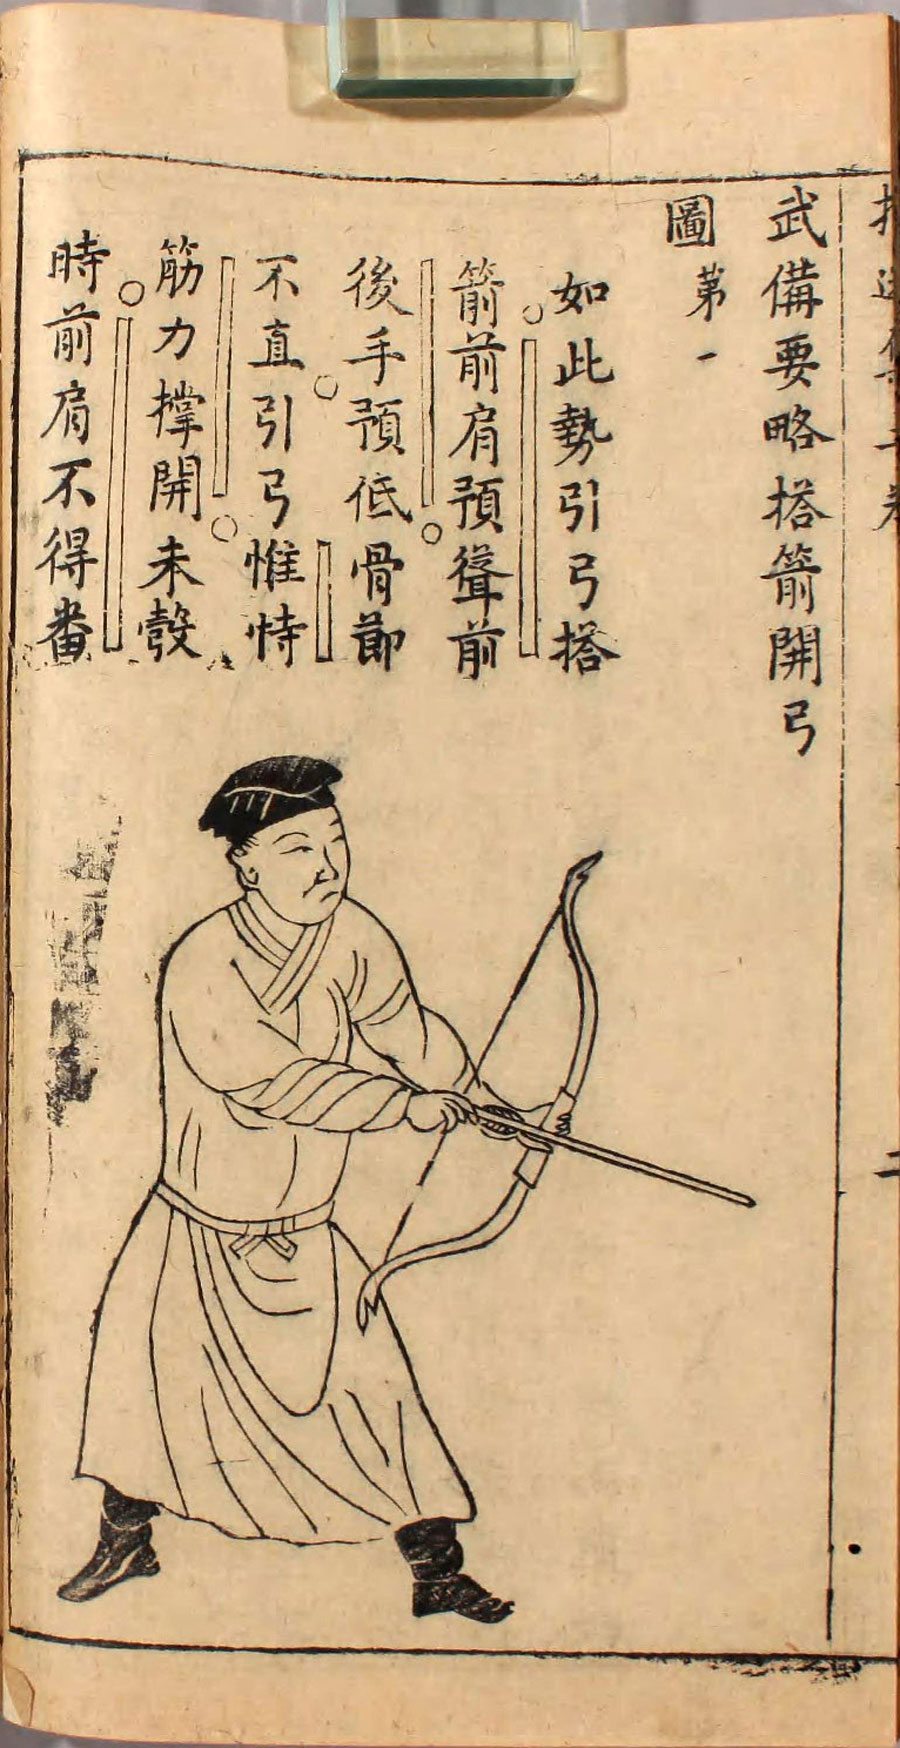 武備要略搭箭開弓
圖第一
如此勢引弓搭
箭前肩預聳前
後手預低骨節
不直引弓惟恃
筋力撑開未彀
時前肩不得番